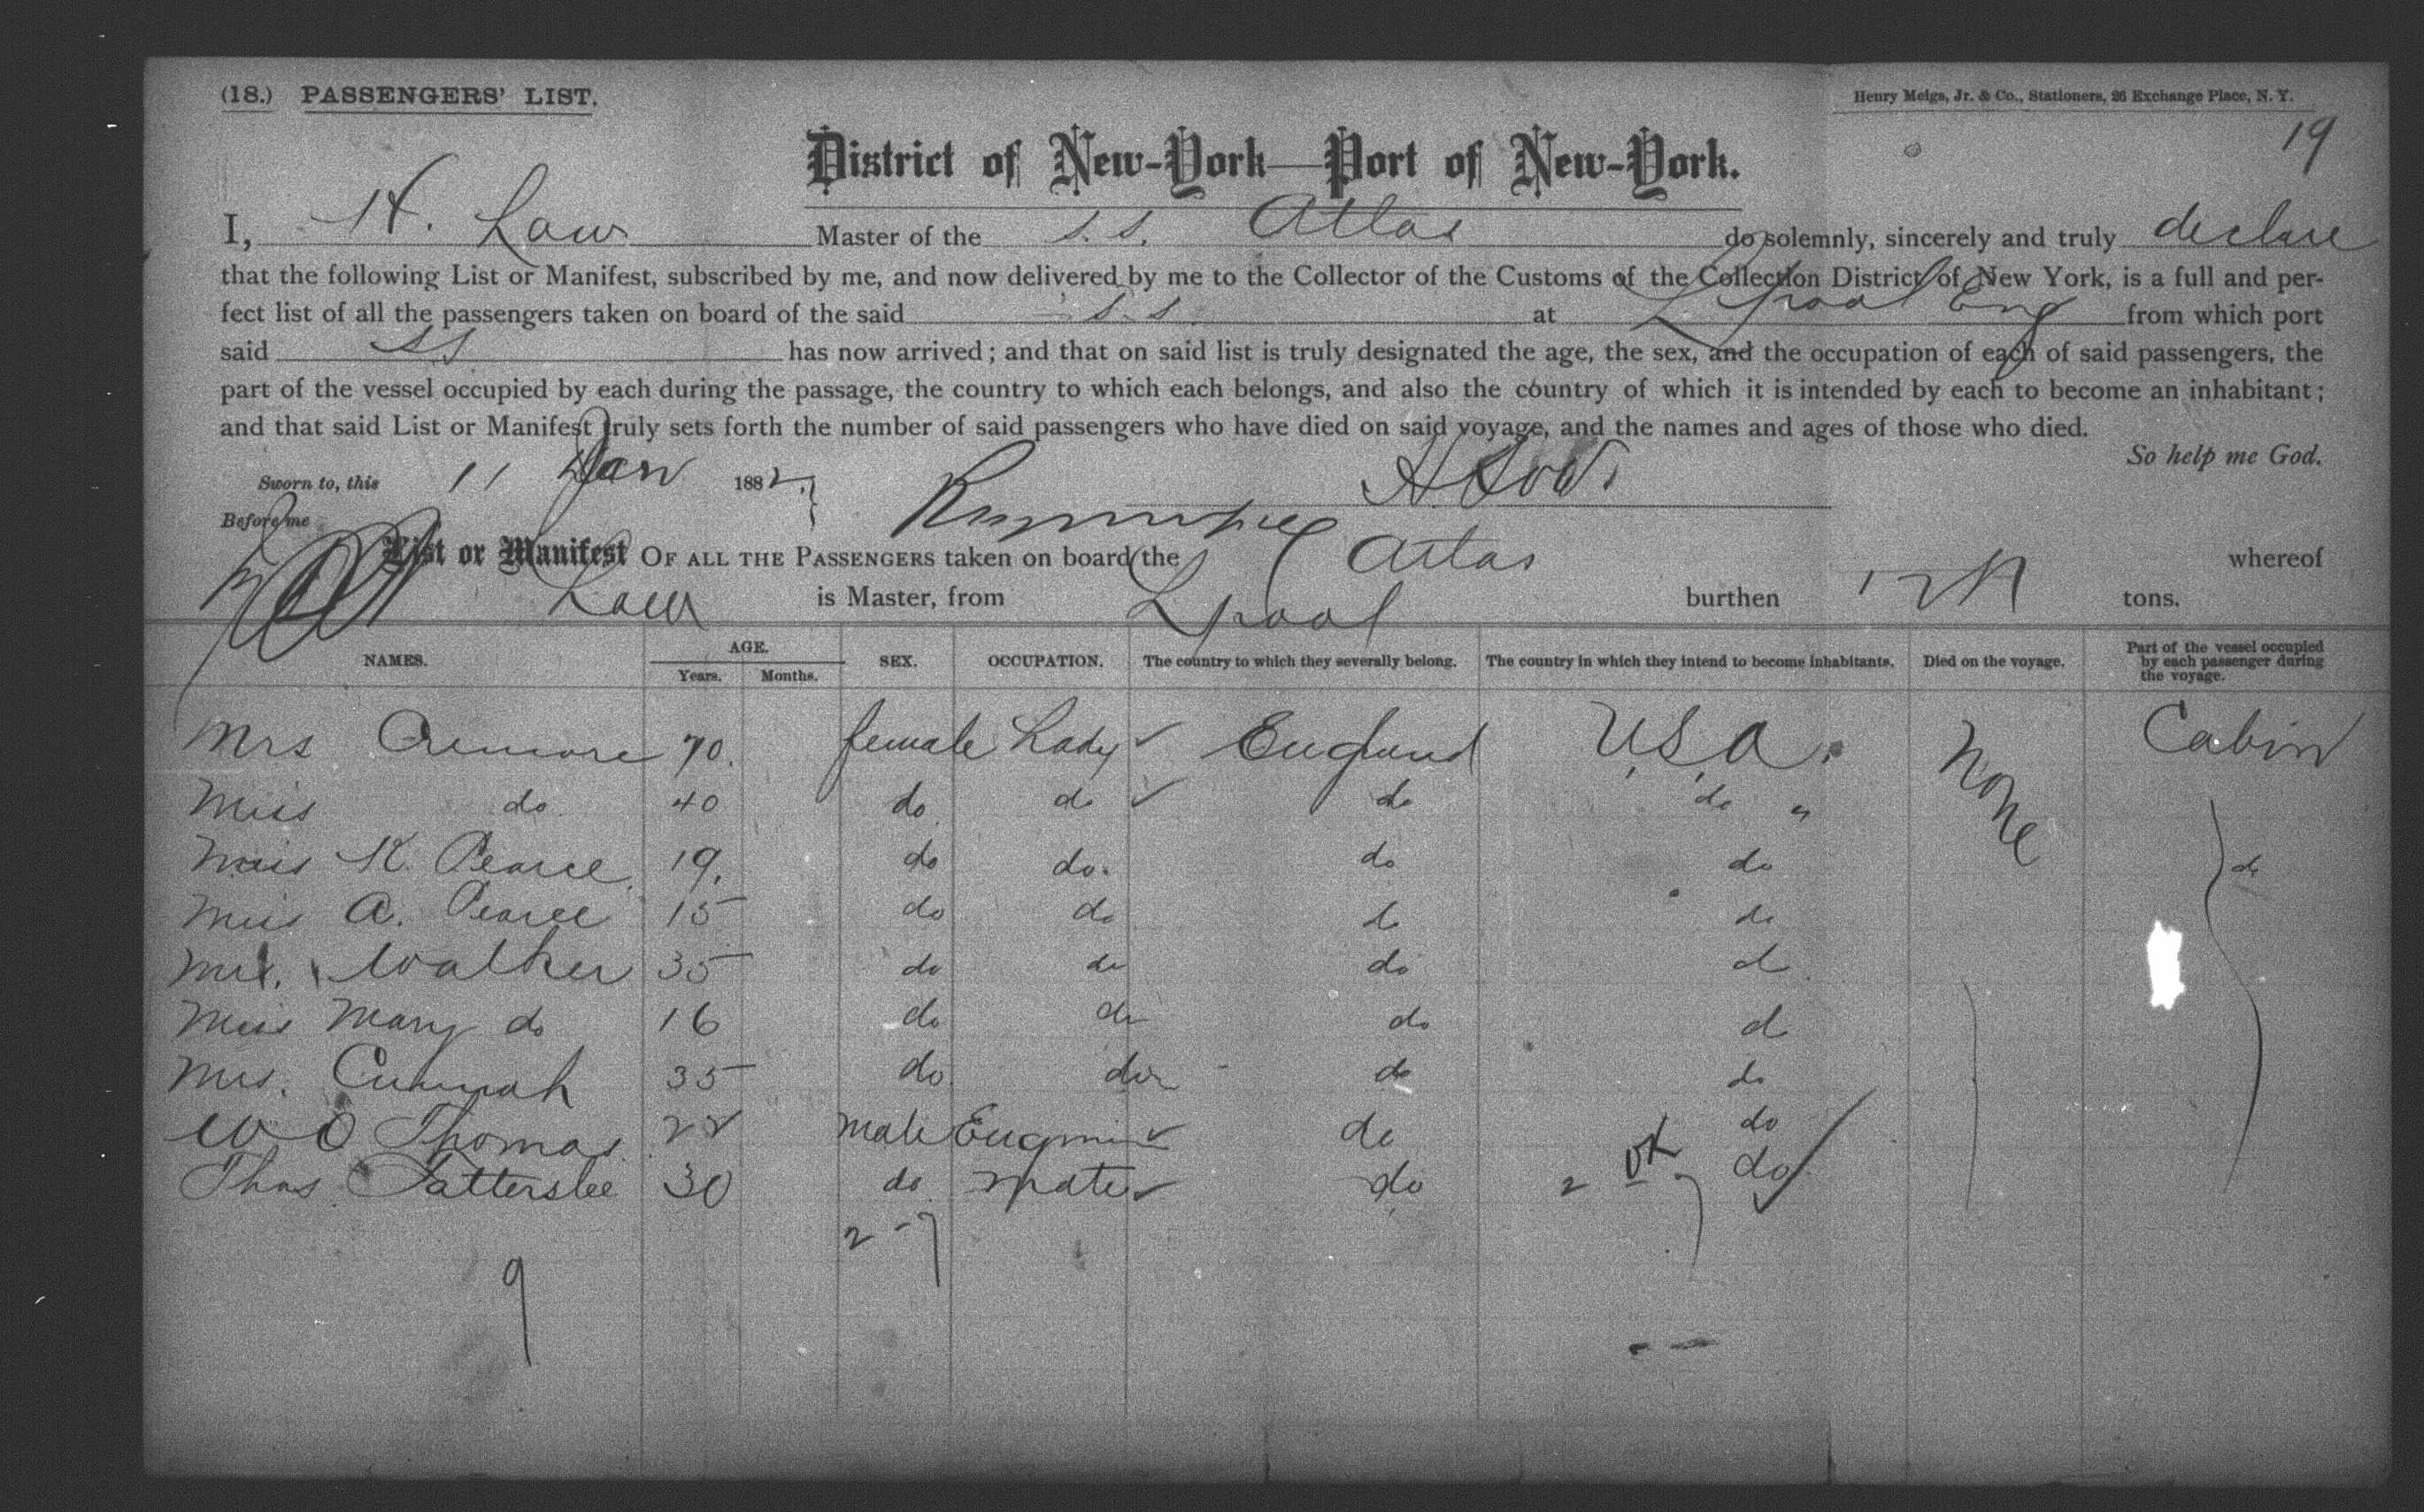 (18.) PASSENGERS' LIST.
Henry Meigs, Jr. & Co., Stationers, 26 Exchange Place, N. Y.
19
District of New-York—Port of New-York.
I, H. Law Master of the S.S. Atlas do solemnly, sincerely and truly declare
that the following List or Manifest, subscribed by me, and now delivered by me to the Collector of the Customs of the Collection District of New York, is a full and per-
fect list of all the passengers taken on board of the said S.S. at Lpool Eng from which port
said SS has now arrived; and that on said list is truly designated the age, the sex, and the occupation of each of said passengers, the
part of the vessel occupied by each during the passage, the country to which each belongs, and also the country of which it is intended by each to become an inhabitant;
and that said List or Manifest truly sets forth the number of said passengers who have died on said voyage, and the names and ages of those who died.
So help me God.
Sworn to, this 11 Jan 1882
Before me
List or Manifest OF ALL THE PASSENGERS taken on board the Atlas whereof
Law is Master, from Lpool burthen tons.
NAMES. AGE. Years. Months. SEX. OCCUPATION. The country to which they severally belong. The country in which they intend to become inhabitants. Died on the voyage. Part of the vessel occupied by each passenger during the voyage.
Mrs 70. female Lady England U.S.A. None Cabin
Miss do 40 do do do do "
Miss K. Pearce 19. do do. do do do
Miss A. Pearce 15 do do do do
Mrs. Walker 35 do do do do
Miss Mary do 16 do do do do
Mrs. 35 do do do do
W O Thomas 22 male do do
Thos 30 do mate do do
2 - 7
9